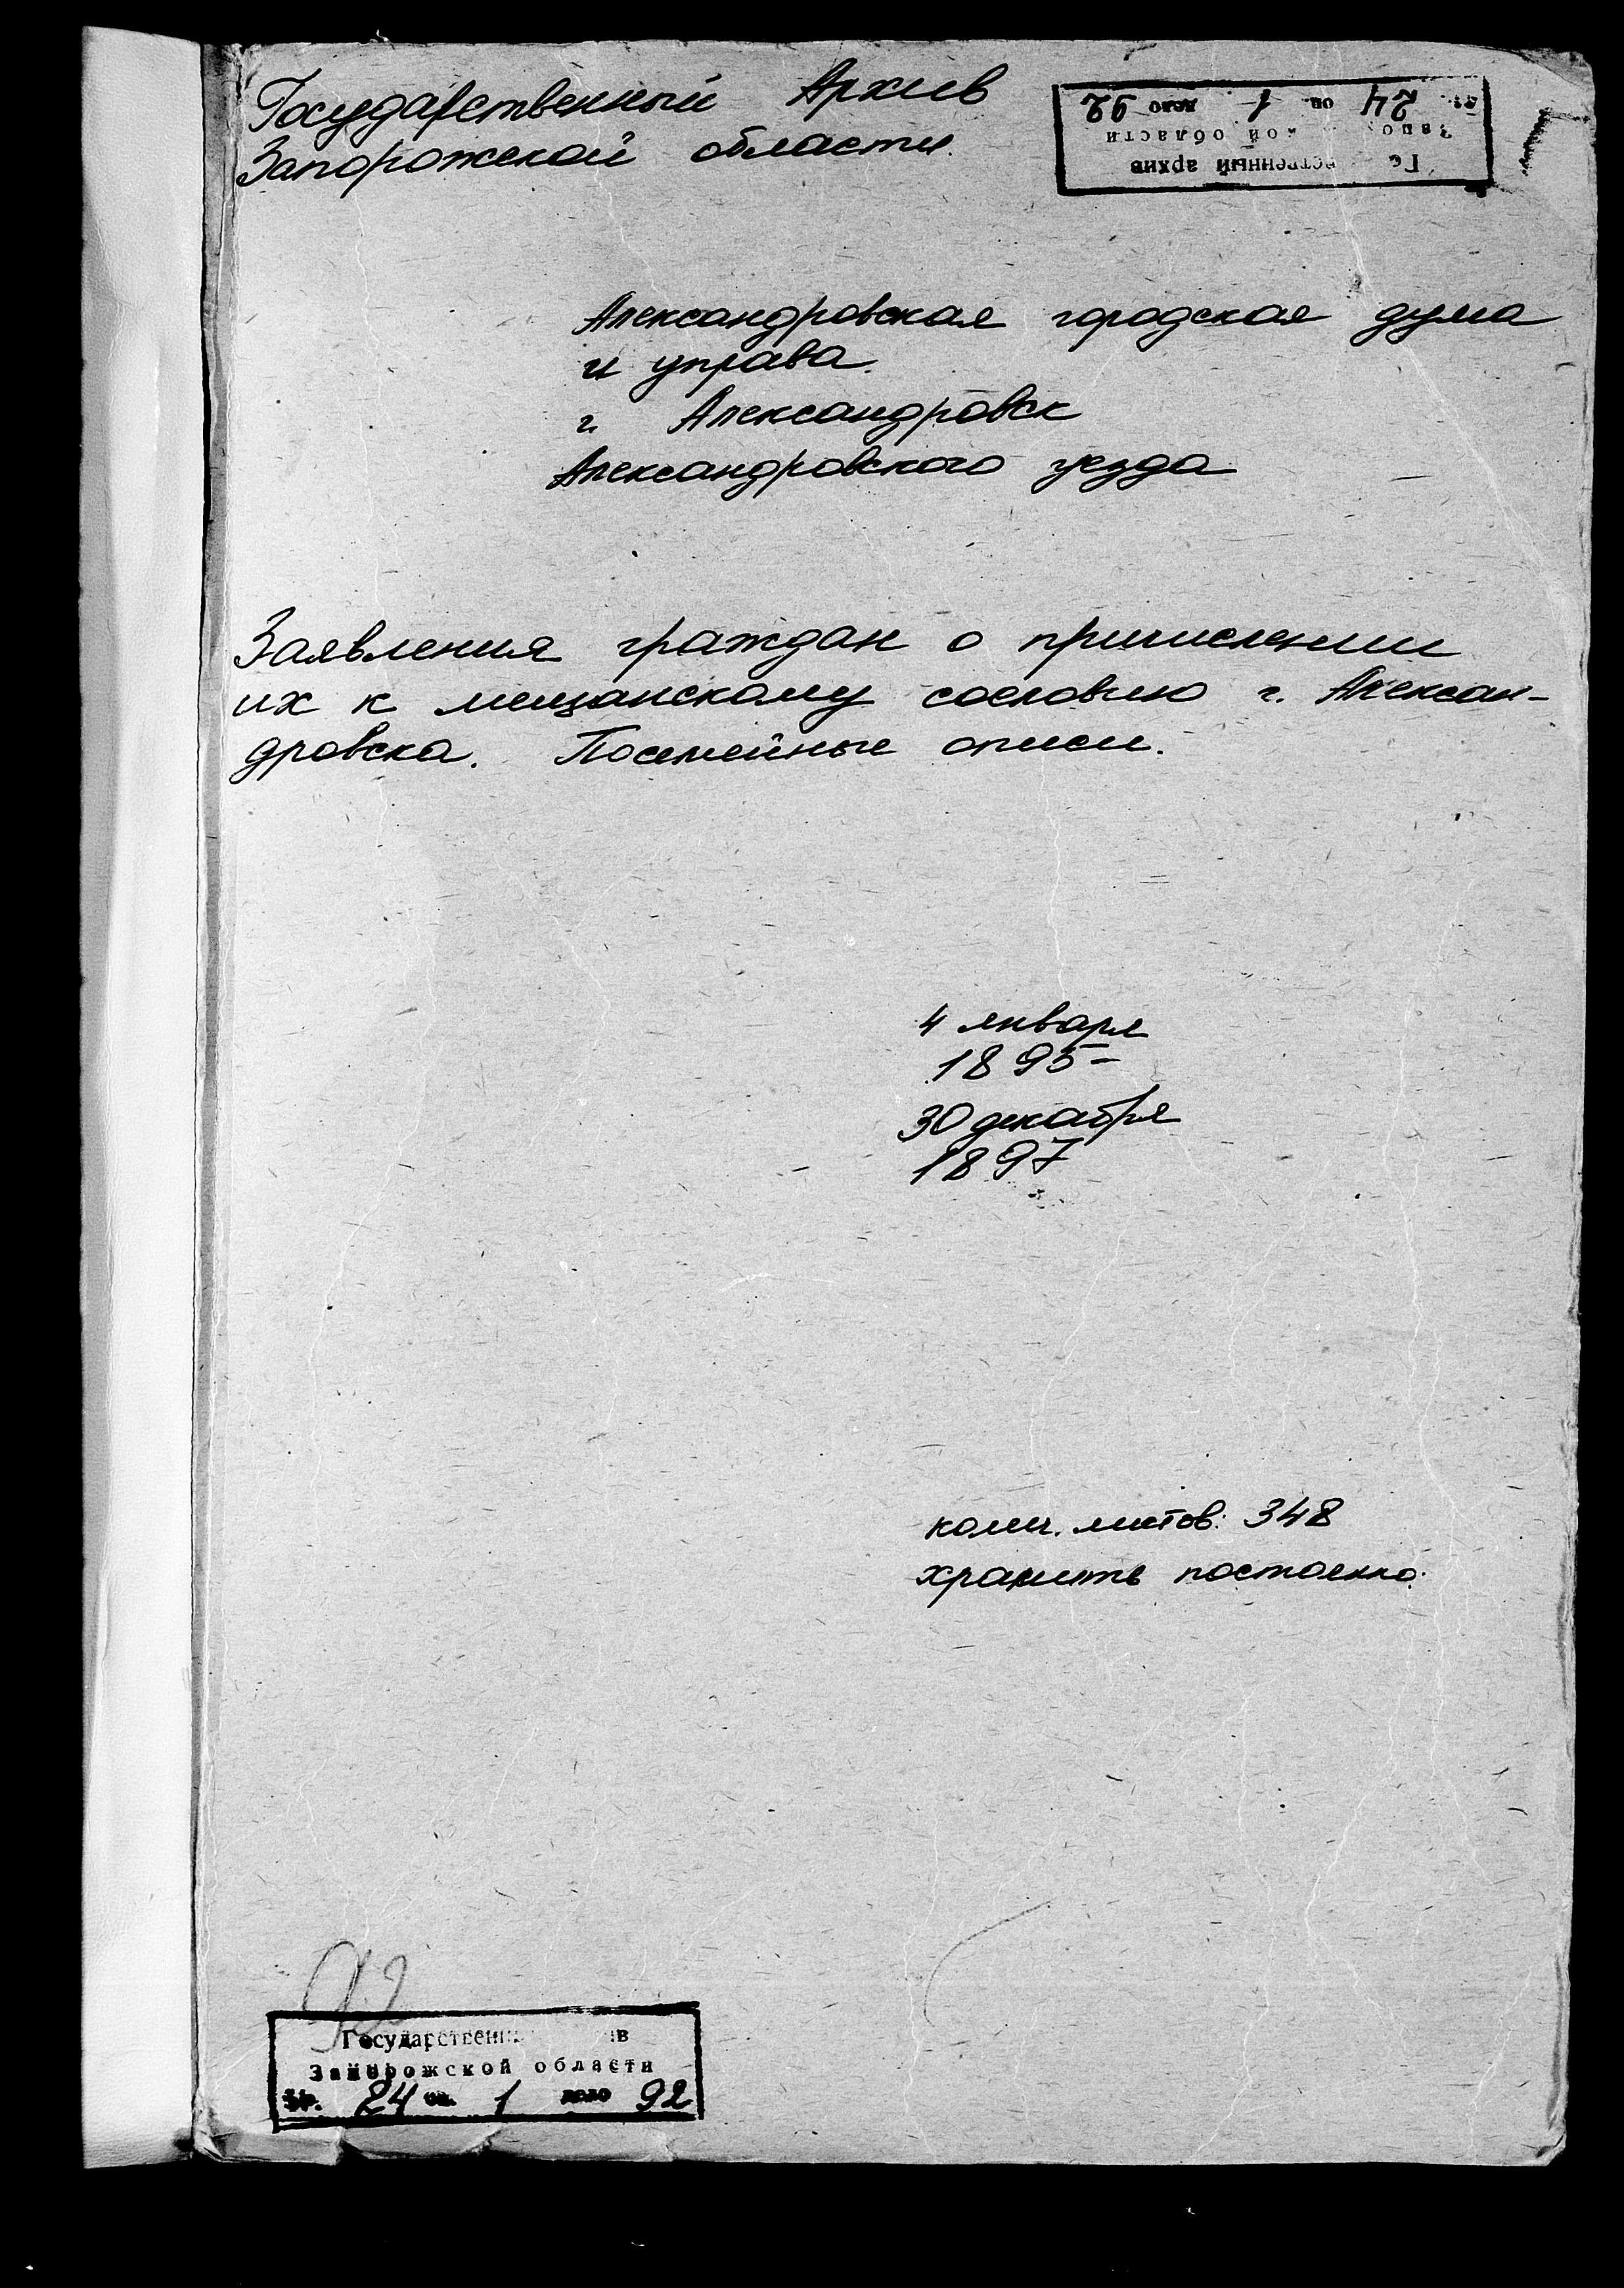 Государственный Архив
Запорожской области.
ственный архив
кой области
24 оп. 1 дело 92
Александровская городская дума
и управа.
г. Александровск
Александровского уезда
Заявления граждан о причислении
их к мещанскому сословию г. Алексан-
дровска. Посемейные описи.
4 января
1895-
30 декабря
1897
колич. листов: 348
хранить постоянно.
92
Запорожской области
24 оп. 1 дело 92